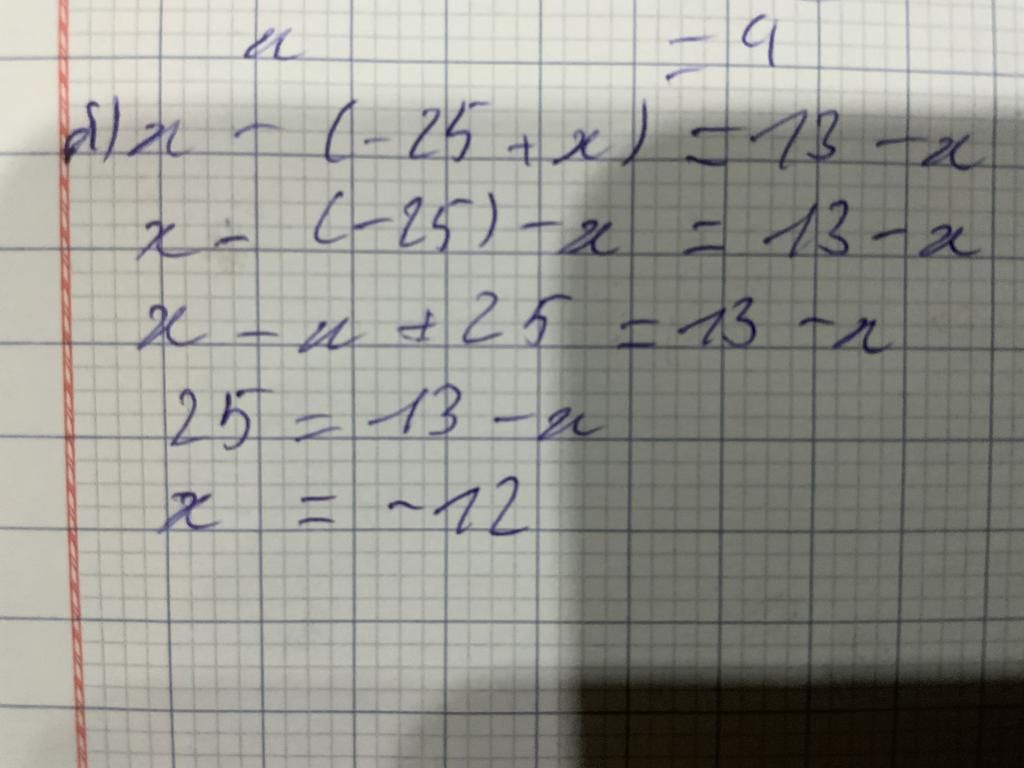 x = 9
б) x - (-25 + x) = 13 - x
x - (-25) - x = 13 - x
x - x + 25 = 13 - x
25 = 13 - x
x = -12